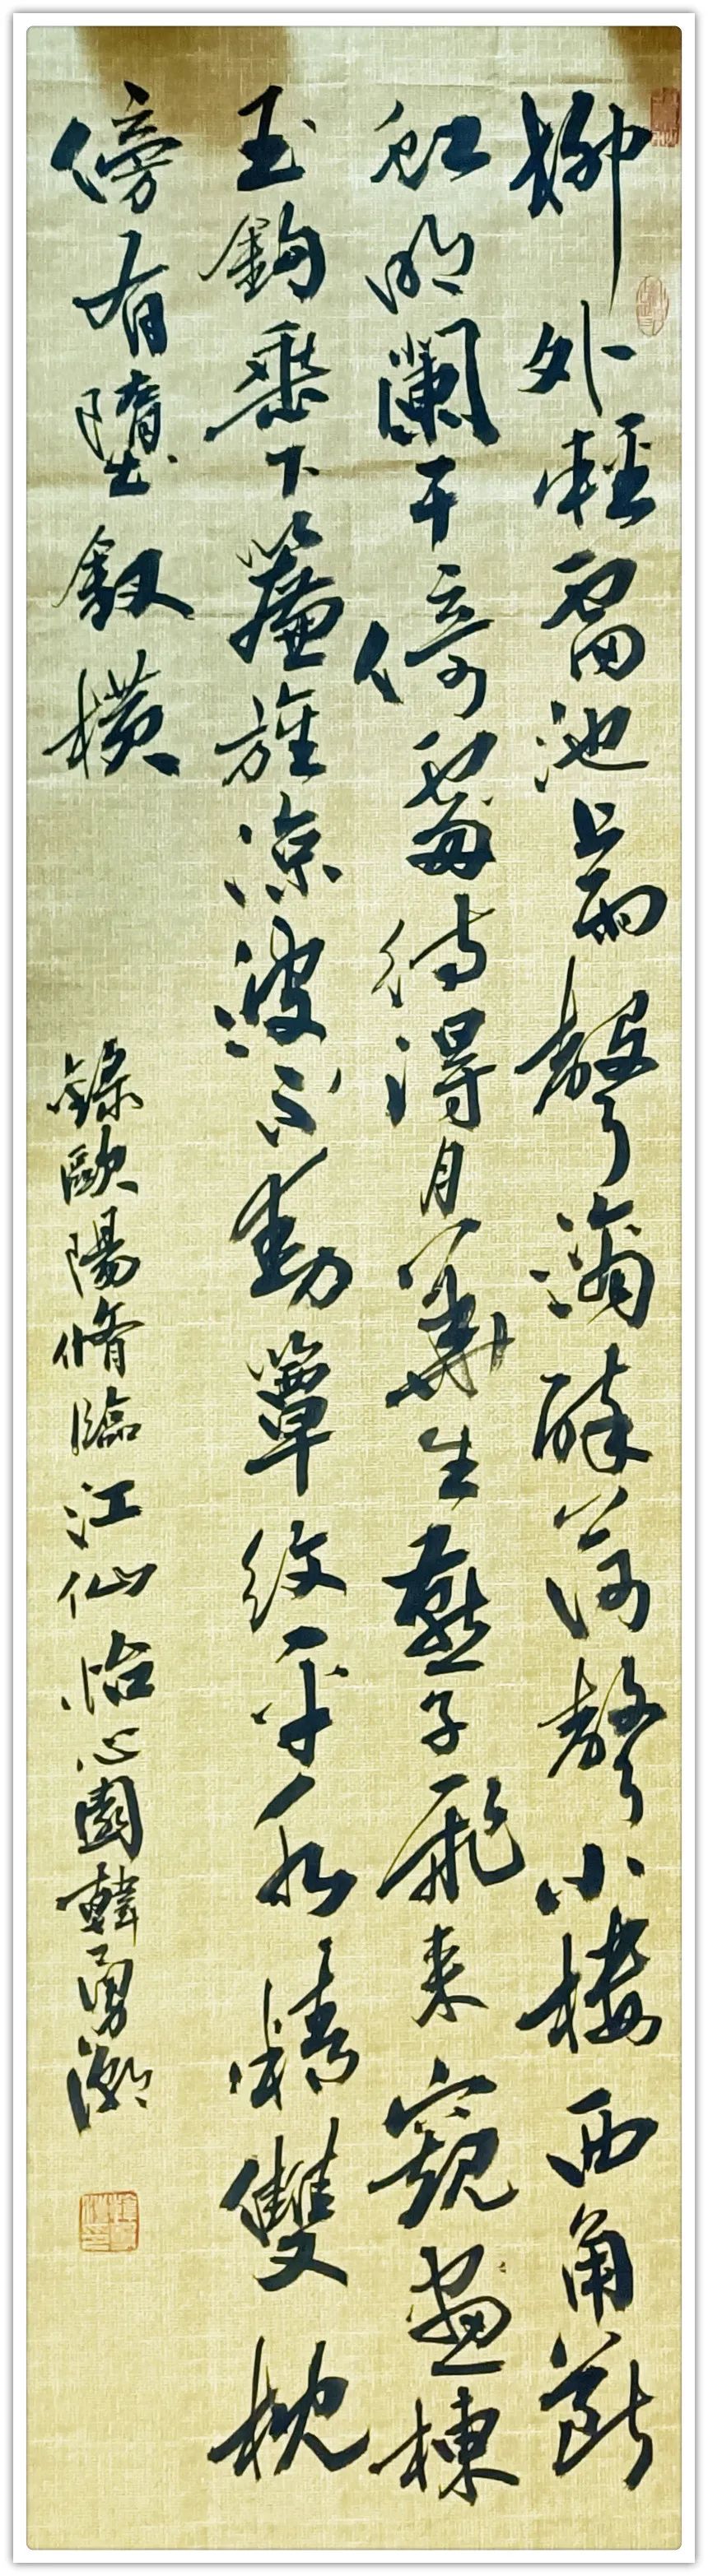 柳外輕雷池上雨聲滴碎荷聲小樓西角斷
虹明闌干倚處待得月華生燕子飛来窺畫棟
玉鉤垂下簾旌涼波不動簟紋平水精雙枕
傍有墮釵橫
錄歐陽脩臨江仙怡心園韓勇